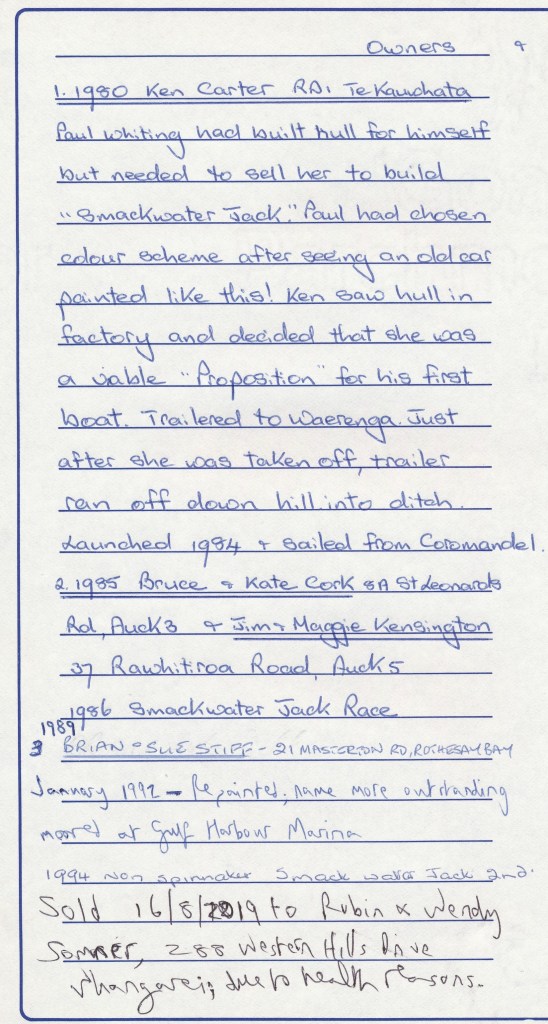 Owners
1. 1980 Ken Carter RD1 Te Kauwhata
Paul Whiting had built hull for himself
but needed to sell her to build
"Smackwater Jack." Paul had chosen
colour scheme after seeing an old car
painted like this! Ken saw hull in
factory and decided that she was
a viable "Proposition" for his first
boat. Trailered to Waerenga. Just
after she was taken off, trailer
ran off down hill into ditch.
Launched 1984 & sailed from Coromandel.
2. 1985 Bruce & Kate Cork 8A St Leonards
Rd, Auck 3 & Jim & Maggie Kensington
37 Rawhitiroa Road, Auck 5
1986 Smackwater Jack Race
1989
3 BRIAN & SUE STIFF - 21 MASTERTON RD, ROTHESAY BAY
January 1992 - Repainted, name more outstanding
moored at Gulf Harbour Marina
1994 Non spinnaker Smack water Jack 2nd.
Sold 16/8/2019 to Robin & Wendy
Sommer, 288 Western Hills Drive
Whangarei, due to health reasons.